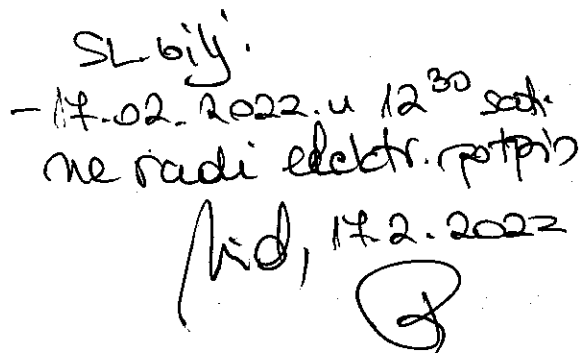 Sl. bilj.
- 17.02.2022. u 12³⁰ sati
ne radi elektr. potpis
17.2.2022